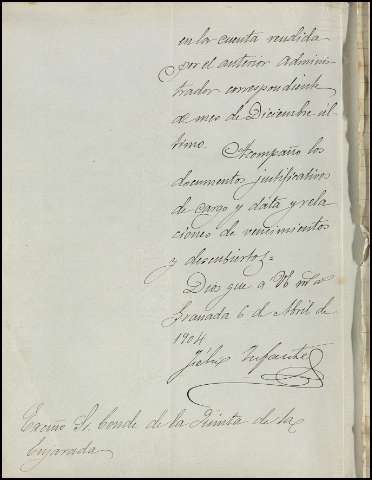 en la cuenta rendida
por el anterior adminis-
trador correspondiente
al mes de Diciembre úl-
timo. Acompaño los
documentos justificativos
de cargo y data y rela-
ciones de vencimientos
y descubiertos=
Dios gue a V. E. m. a.
Granada 6 de Abril de
1904
Félix Infante
Excmo Sr. Conde de la Quinta de la
Enjarada